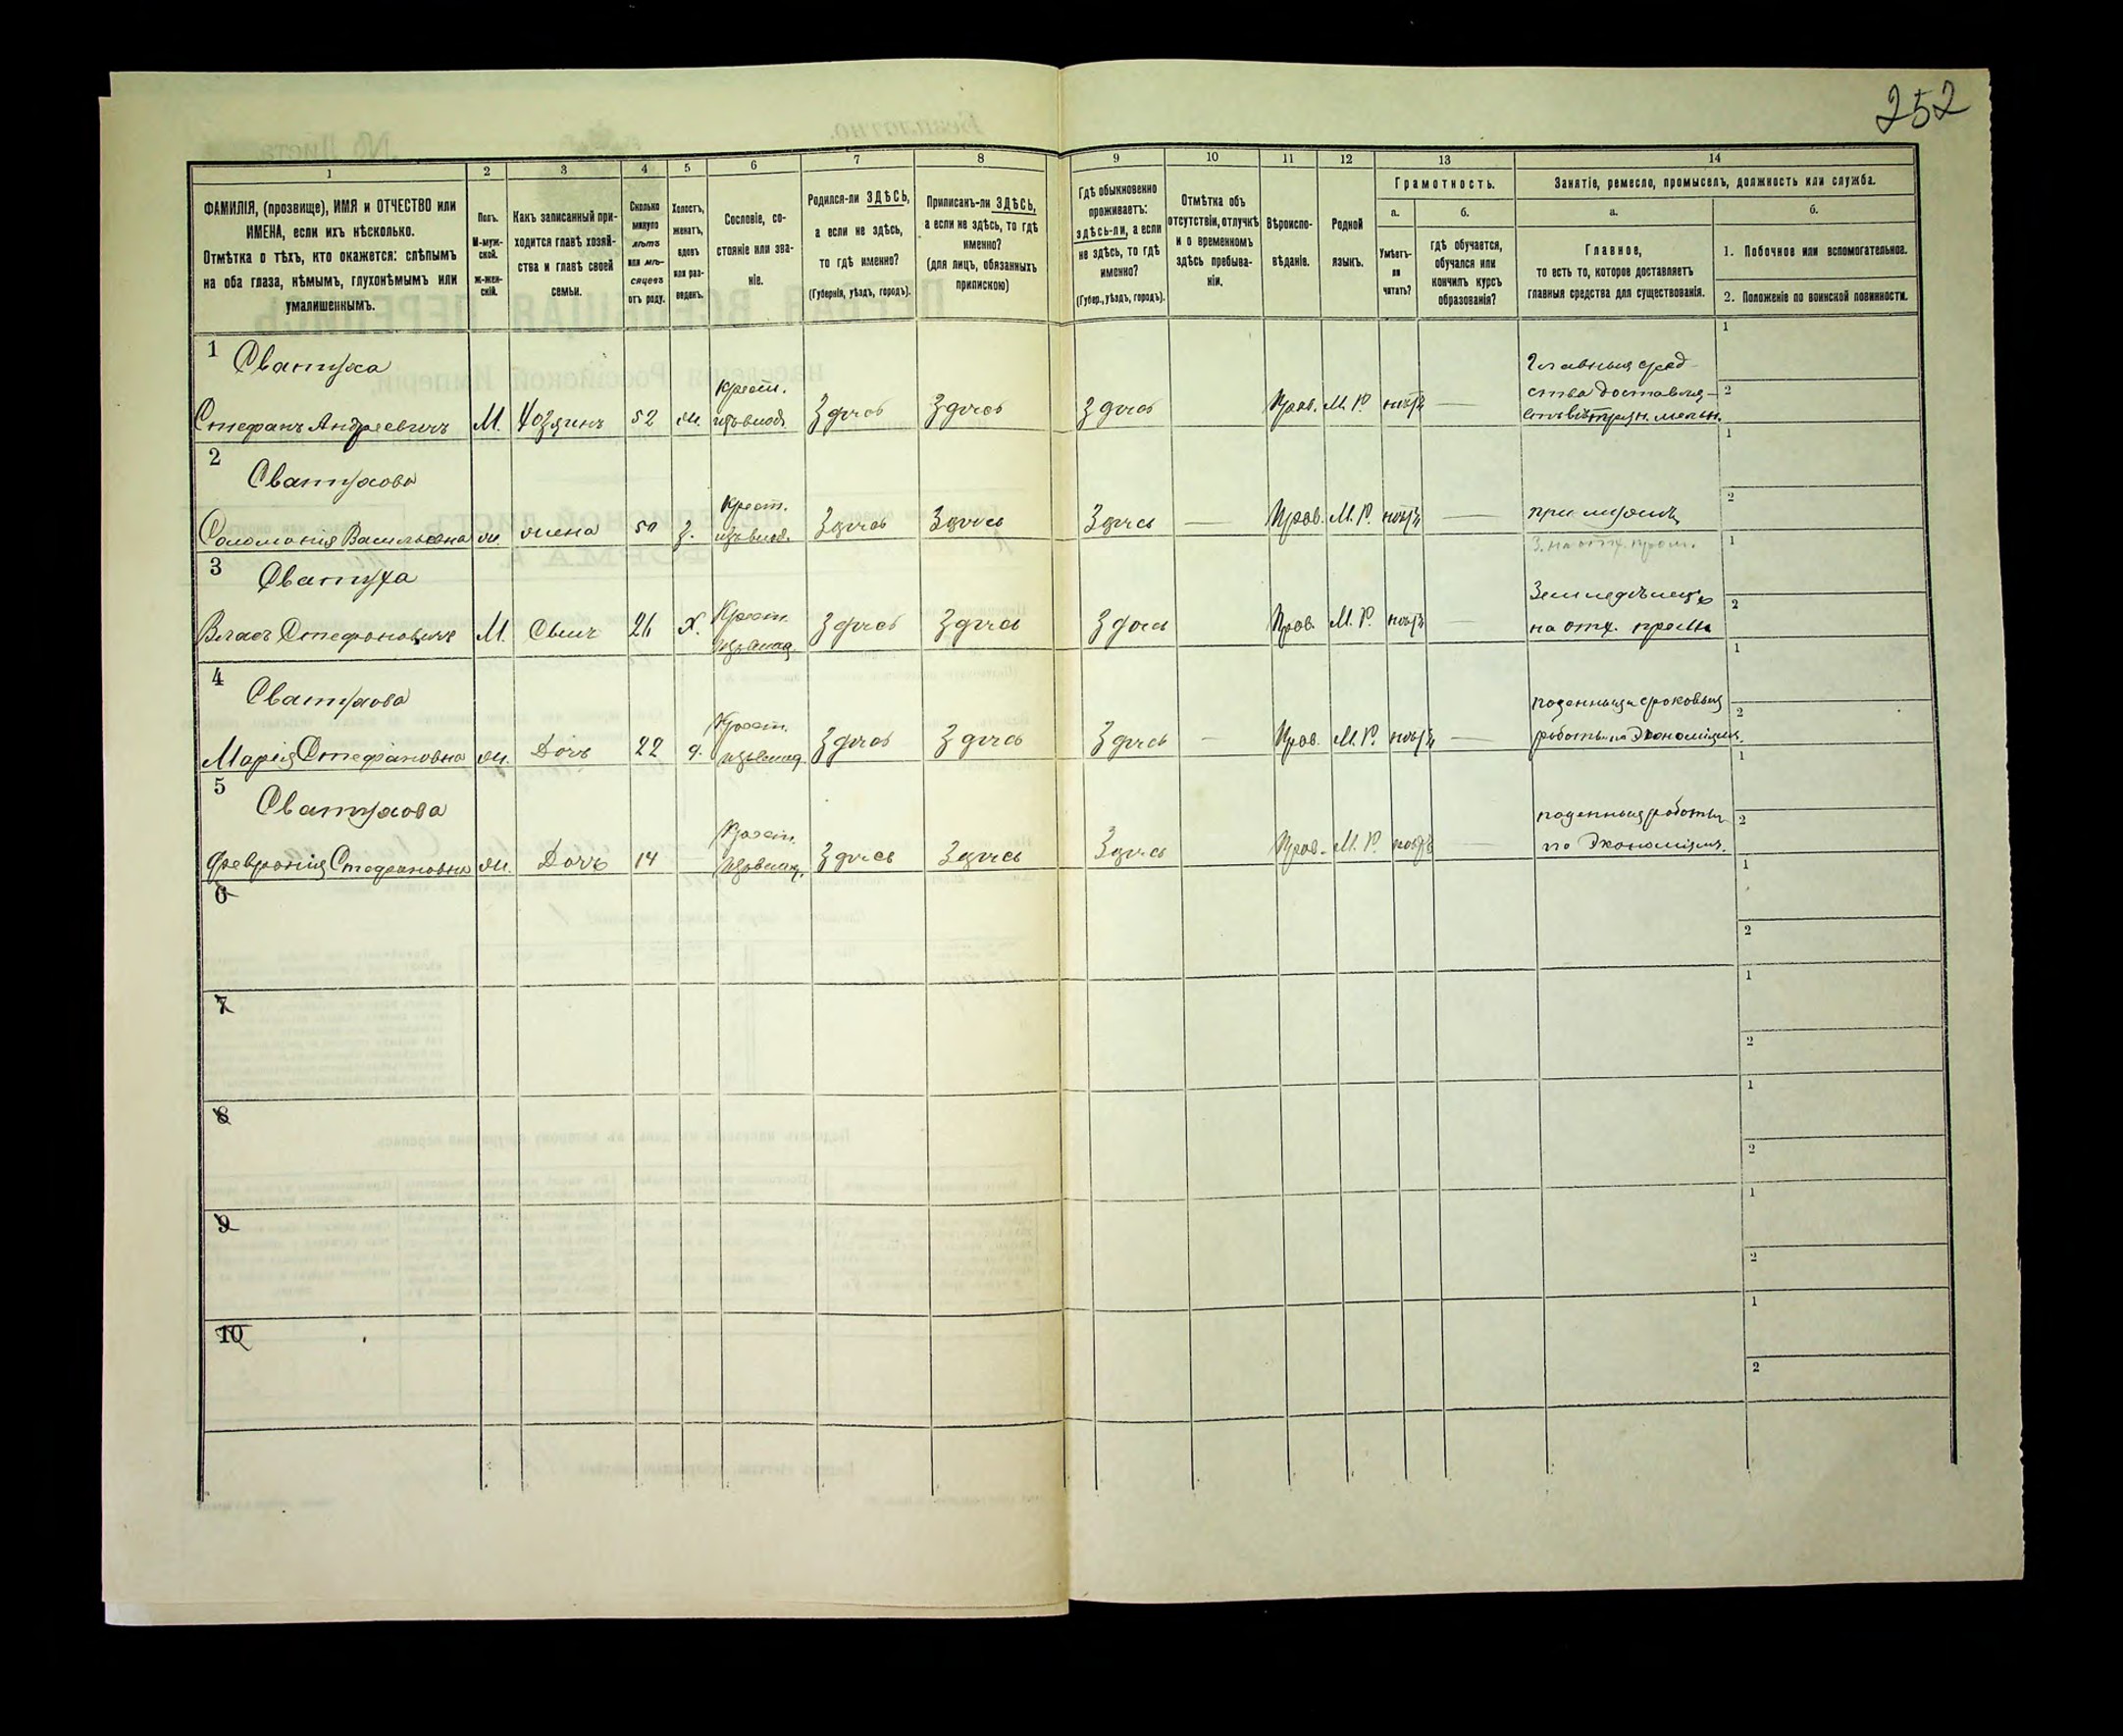 252
1
2
3
4
5
6
7
8
9
10
11
12
13
14
ФАМИЛІЯ, (прозвище), ИМЯ и ОТЧЕСТВО или
ИМЕНА, если ихъ нѣсколько.
Отмѣтка о тѣхъ, кто окажется: слѣпымъ
на оба глаза, нѣмымъ, глухонѣмымъ или
умалишеннымъ.
Полъ.
М-муж-
ской.
Ж-жен-
скій.
Какъ записанный при-
ходится главѣ хозяй-
ства и главѣ своей
семьи.
Сколько
минуло
лѣтъ
или мѣ-
сяцевъ
отъ роду.
Холостъ,
женатъ,
вдовъ
или раз-
веденъ.
Сословіе, со-
стояніе или зва-
ніе.
Родился-ли ЗДѢСЬ,
а если не здѣсь,
то гдѣ именно?
(Губернія, уѣздъ, городъ).
Приписанъ-ли ЗДѢСЬ,
а если не здѣсь, то гдѣ
именно?
(для лицъ, обязанныхъ
припискою)
Гдѣ обыкновенно
проживаетъ:
здѣсь-ли, а если
не здѣсь, то гдѣ
именно?
(Губер., уѣздъ, городъ).
Отмѣтка объ
отсутствіи, отлучкѣ
и о временномъ
здѣсь пребыва-
ніи.
Вѣроиспо-
вѣданіе.
Родной
языкъ.
Грамотность.
а.
Умѣетъ-
ли
читать?
б.
гдѣ обучается,
обучался или
кончилъ курсъ
образованія?
Занятіе, ремесло, промыселъ, должность или служба.
а.
Главное,
то есть то, которое доставляетъ
главныя средства для существованія.
б.
1. Побочное или вспомогательное.
2. Положеніе по воинской повинности.
1 Сватуха
Стефанъ Андреевичъ М. Хозяинъ 52 ж. Крест. Здѣсь Здѣсь Здѣсь Прав. М. Р. нѣтъ —
Главныя сред-
ства доставля-
1
2
2 Сватухова
Соломонія Васильевна ж. жена 50 з. Крест. Здѣсь Здѣсь Здѣсь — Прав. М. Р. нѣтъ —
при мужѣ
1
2
3 Сватуха
З. на отх. пром.
Власъ Стефановичъ М. Сынъ 26 Х. Крест. Здѣсь Здѣсь Здѣсь Прав. М. Р. нѣтъ —
на отх. промы
1
2
4 Сватухова
Марія Стефановна ж. Дочь 22 д. Крест. Здѣсь Здѣсь Здѣсь — Прав. М. Р. нѣтъ —
1
2
5 Сватухова
Февронія Стефановна ж. Дочь 14 Крест. Здѣсь Здѣсь Здѣсь Прав. М. Р. нѣтъ
поденныя работы
по Экономіямъ.
1
2
6
1
2
7
1
2
8
1
2
9
1
2
10
1
2